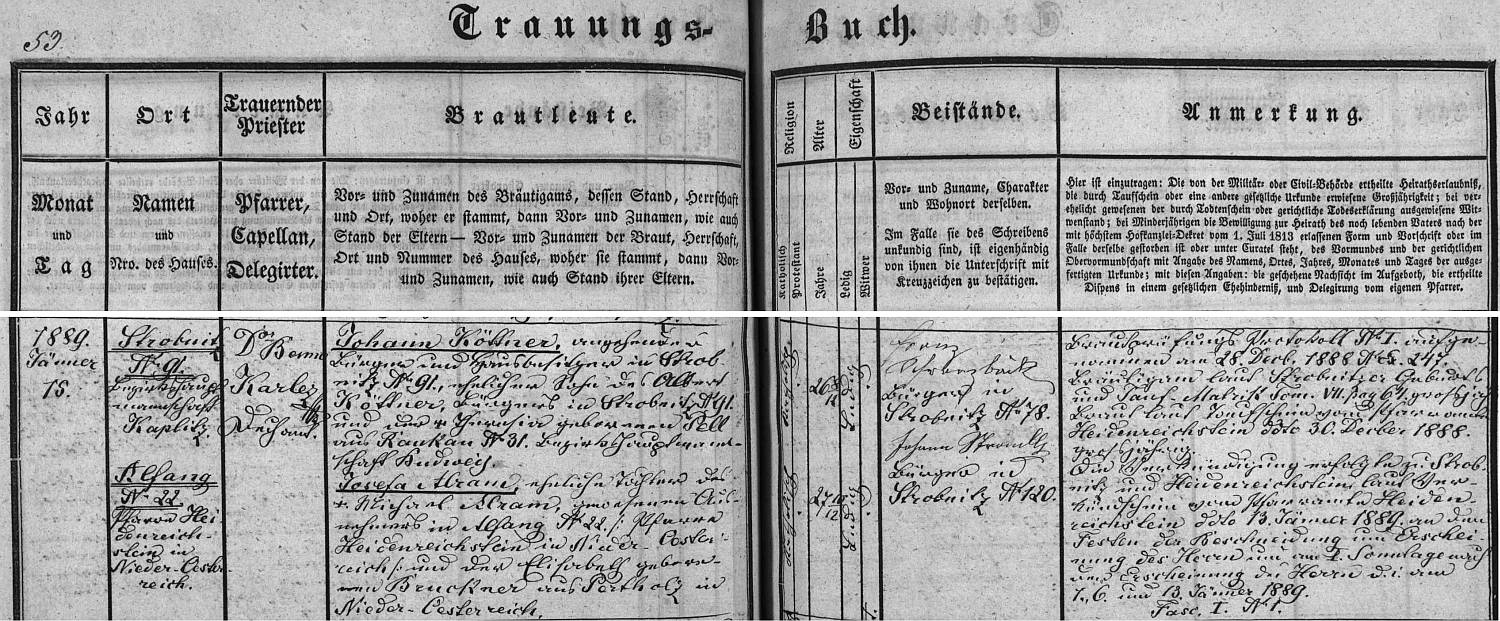 53.
Trauungs-Buch.
Jahr
Monat
und
Tag
Ort
Namen
und
Nro. des Hauses.
Trauernder
Priester
Pfarrer,
Capellan,
Delegirter.
Brautleute.
Vor- und Zunamen des Bräutigams, dessen Stand, Herrschaft
und Ort, woher er stammt, dann Vor- und Zunamen, wie auch
Stand der Eltern — Vor- und Zunamen der Braut, Herrschaft,
Ort und Nummer des Hauses, woher sie stammt, dann Vor-
und Zunamen, wie auch Stand ihrer Eltern.
Religion
Katholisch
Protestant
Alter
Jahre
Eigenschaft
Ledig
Witwer
Beistände.
Vor- und Zuname, Charakter
und Wohnort derselben.
Im Falle sie des Schreibens
unkundig sind, ist eigenhändig
von ihnen die Unterschrift mit
Kreuzzeichen zu bestätigen.
Anmerkung.
Hier ist einzutragen: Die von der Militär- oder Civil-Behörde ertheilte Heirathserlaubniß,
die durch Taufschein oder eine andere gesetzliche Urkunde erwiesene Großjährigkeit; bei ver-
ehelicht gewesenen der durch Todtenschein oder gerichtliche Todeserklärung ausgewiesene Wit-
wenstand; bei Minderjährigen die Bewilligung zur Heirath des noch lebenden Vaters nach der
mit höchstem Hofkanzlei-Dekret vom 1. Juli 1813 erlassenen Form und Vorschrift oder im
Falle derselbe gestorben ist oder unter Curatel steht, des Vormundes und der gerichtlichen
Obervormundschaft mit Angabe des Namens, Ortes, Jahres, Monates und Tages der ausge-
fertigten Urkunde; mit diesen Angaben: die geschehene Nachsicht im Aufgeboth, die ertheilte
Dispens in einem gesetzlichen Ehehinderniß, und Delegirung vom eigenen Pfarrer.
1889.
Jänner
15.
Strobnitz
N. 91.
Bezirkshaupt
mannschaft
Kaplitz
Alfang
N. 22
Pfarre Hei-
denreich-
stein in
Nieder-Oester-
reich.
Dor
Benno
Karlez
Dechant.
Johann Köttner, angehender
Bürger und Hausbesitzer in Strob-
nitz N. 91., ehelicher Sohn des Albert
Köttner, Bürgers in Strobnitz N. 91.
und der + Theresia geborenen Pell
aus Raukau N. 31. Bezirkshauptmann-
schaft Budweis.
Josefa Abram, eheliche Tochter des
+ Michael Abram, gewesenen Aus-
nehmers in Alfang N. 22 /: Pfarre
Heidenreichstein in Nieder-Oester-
reich :/ und der Elisabeth gebore-
nen Bruckner aus Pertholz in
Nieder-Oesterreich.
Katholisch
26
Ledig
Katholisch
27 10/12
Ledig
Bürger in
Strobnitz N. 78.
Johann
Bürger in
Strobnitz N. 120.
Brautprüfungs Protokoll N. I. aufge-
nommen am 28. Decb. 1888 N. 247
Bräutigam laut Strobnitzer Geburts
und Tauf-Matrik Tom. VII. pag 67 großjährig
Braut laut Taufschein vom Pfarramte
Heidenreichstein ddto 30. Decber 1888.
großjährig.
Die Verkündigung erfolgte zu Strob-
nitz und Heidenreichstein laut Ver-
kündschein vom Pfarramte Heiden-
reichstein ddto 13. Jänner 1889. an den
Festen der Beschneidung und Erschei-
nung des Herrn und am I. Sonntage nach
der Erscheinung des Herrn d. i. am
1., 6. und 13. Jänner 1889.
Fasc. I. N. 1.